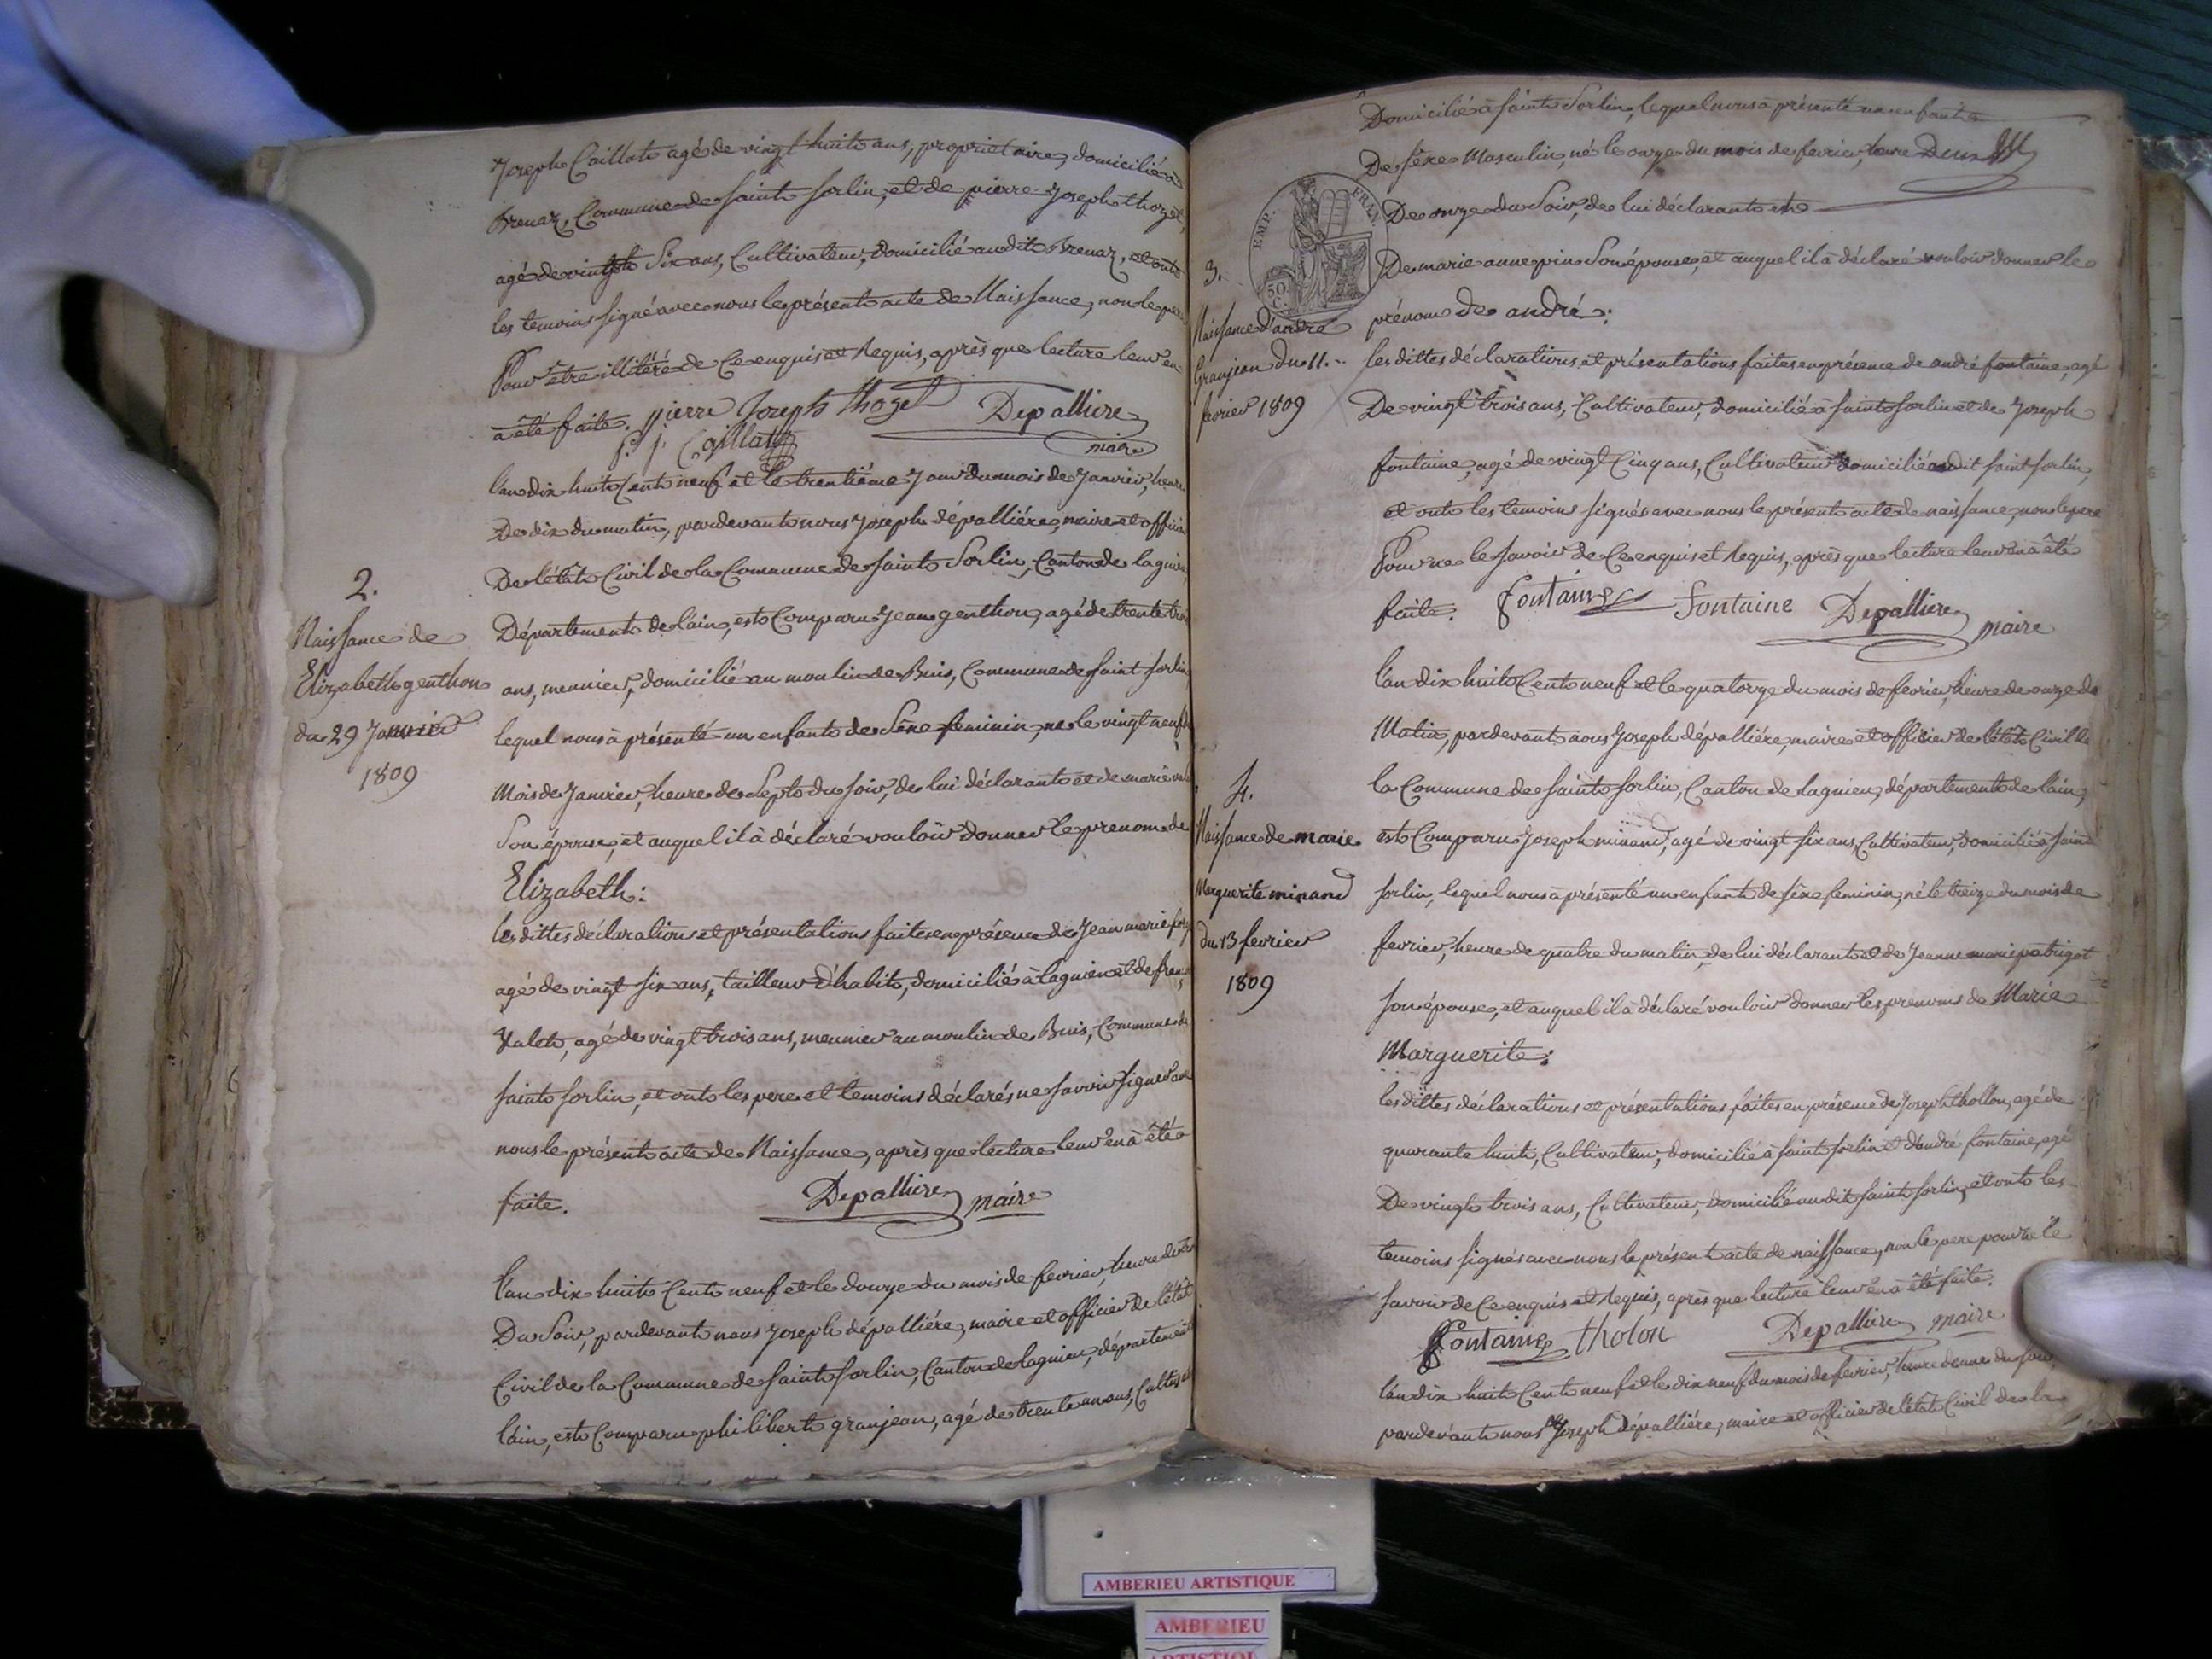 Joseph Caillat agé de vingt huit ans, proprietaire, domicilié à
Brenaz, Commune de saint sorlin, et de pierre Joseph thozet,
agé de vingt Six ans, Cultivateur, domicilié audit Brenaz, et ont
les temoins signé avec nous le présent acte de Naissance, non le pere
Pour être illitéré de Ce enquis et Requis, après que lecture leur en
à été faite. pierre Joseph thozet Depalliere
p. j. Caillat maire
l'an dix huit Cent neuf et le trentiéme Jour du mois de Janvier, heure
De dix du matin, pardevant nous Joseph dépalliére, maire et officier
De l'état Civil de la Commune de saint Sorlin, Canton de lagnieu,
2.
Naissance de
Elizabeth genthon
du 29 Janvier
1809
Département de lain, est Comparu Jean genthon, agé de trente trois
ans, meunier, domicilié au moulin de Buis, Commune de saint sorlin,
lequel nous à présenté un enfant de Séxe feminin, né le vingt neuf du
Mois de Janvier, heure de Sept du soir, de lui déclarant et de marie
Son épouse, et auquel il à déclaré vouloir donner le prenom de
Elizabeth:
les dittes déclarations et présentations faites en présence de Jean marie
agé de vingt six ans, tailleur d'habits, domicilié à lagnieu et de
Valet, agé de vingt trois ans, meunier au moulin de Buis, Commune de
saint sorlin, et ont les pere et temoins déclarés ne savoir signer avec
nous le présent acte de Naissance, après que lecture leur en à été
faite. Depalliere maire
l'an dix huit Cent neuf et le douze du mois de fevrier, heure de
Du Soir, pardevant nous Joseph dépalliére, maire et officier de l'état
Civil de la Commune de saint sorlin, Canton de lagnieu, département
lain, est Comparu philibert granjean, agé de trente un ans, Cultivateur
Domicilié à saint Sorlin, lequel nous à présenté un enfant
De séxe Masculin, né le onze du mois de fevrier, heure
De onze du Soir, de lui déclarant et
EMP. FRAN.
50 C.
3.
Naissance d'andré
Granjean du 11.
fevrier 1809
De marie anne pin Son épouse, et auquel il à déclaré vouloir donner le
prénom de andré:
les dittes déclarations et présentations faites en présence de andré fontaine, agé
De vingt trois ans, Cultivateur, domicilié à saint sorlin et de Joseph
fontaine, agé de vingt Cinq ans, Cultivateur domicilié audit saint sorlin,
et ont les temoins signés avec nous le présent acte de naissance, non le pere
Pour ne le savoir de Ce enquis et Requis, après que lecture leur en à été
faite. fontaine fontaine Depalliere maire
l'an dix huit Cent neuf et le quatorze du mois de fevrier, heure de onze du
Matin, pardevant nous Joseph dépalliére, maire et officier de l'état Civil de
la Commune de saint sorlin, Canton de lagnieu, département de lain,
4.
Naissance de marie
Marguerite minand
du 13 fevrier
1809
est Comparu Joseph minand, agé de vingt six ans, Cultivateur, domicilié à saint
sorlin, lequel nous à présenté un enfant de séxe feminin, né le treize du mois de
fevrier, heure de quatre du matin, de lui déclarant et de Jeanne marie patigot
son épouse, et auquel il à déclaré vouloir donner les prenoms de Marie
Marguerite:
les dittes déclarations et présentations faites en présence de Joseph thollon, agé de
quarante huit, Cultivateur, domicilié à saint sorlin et d'andré fontaine, agé
De vingt trois ans, Cultivateur, domicilié audit saint sorlin, et ont les
temoins signés avec nous le présent acte de naissance, non le pere pour ne le
savoir de Ce enquis et Requis, après que lecture leur en à été faite.
fontaine tholon Depalliere maire
l'an dix huit Cent neuf et le dix neuf du mois de fevrier, heure d'une du soir,
pardevant nous Joseph dépalliére, maire et officier de l'état Civil de la
AMBERIEU ARTISTIQUE
AMBERIEU
ARTISTIQUE